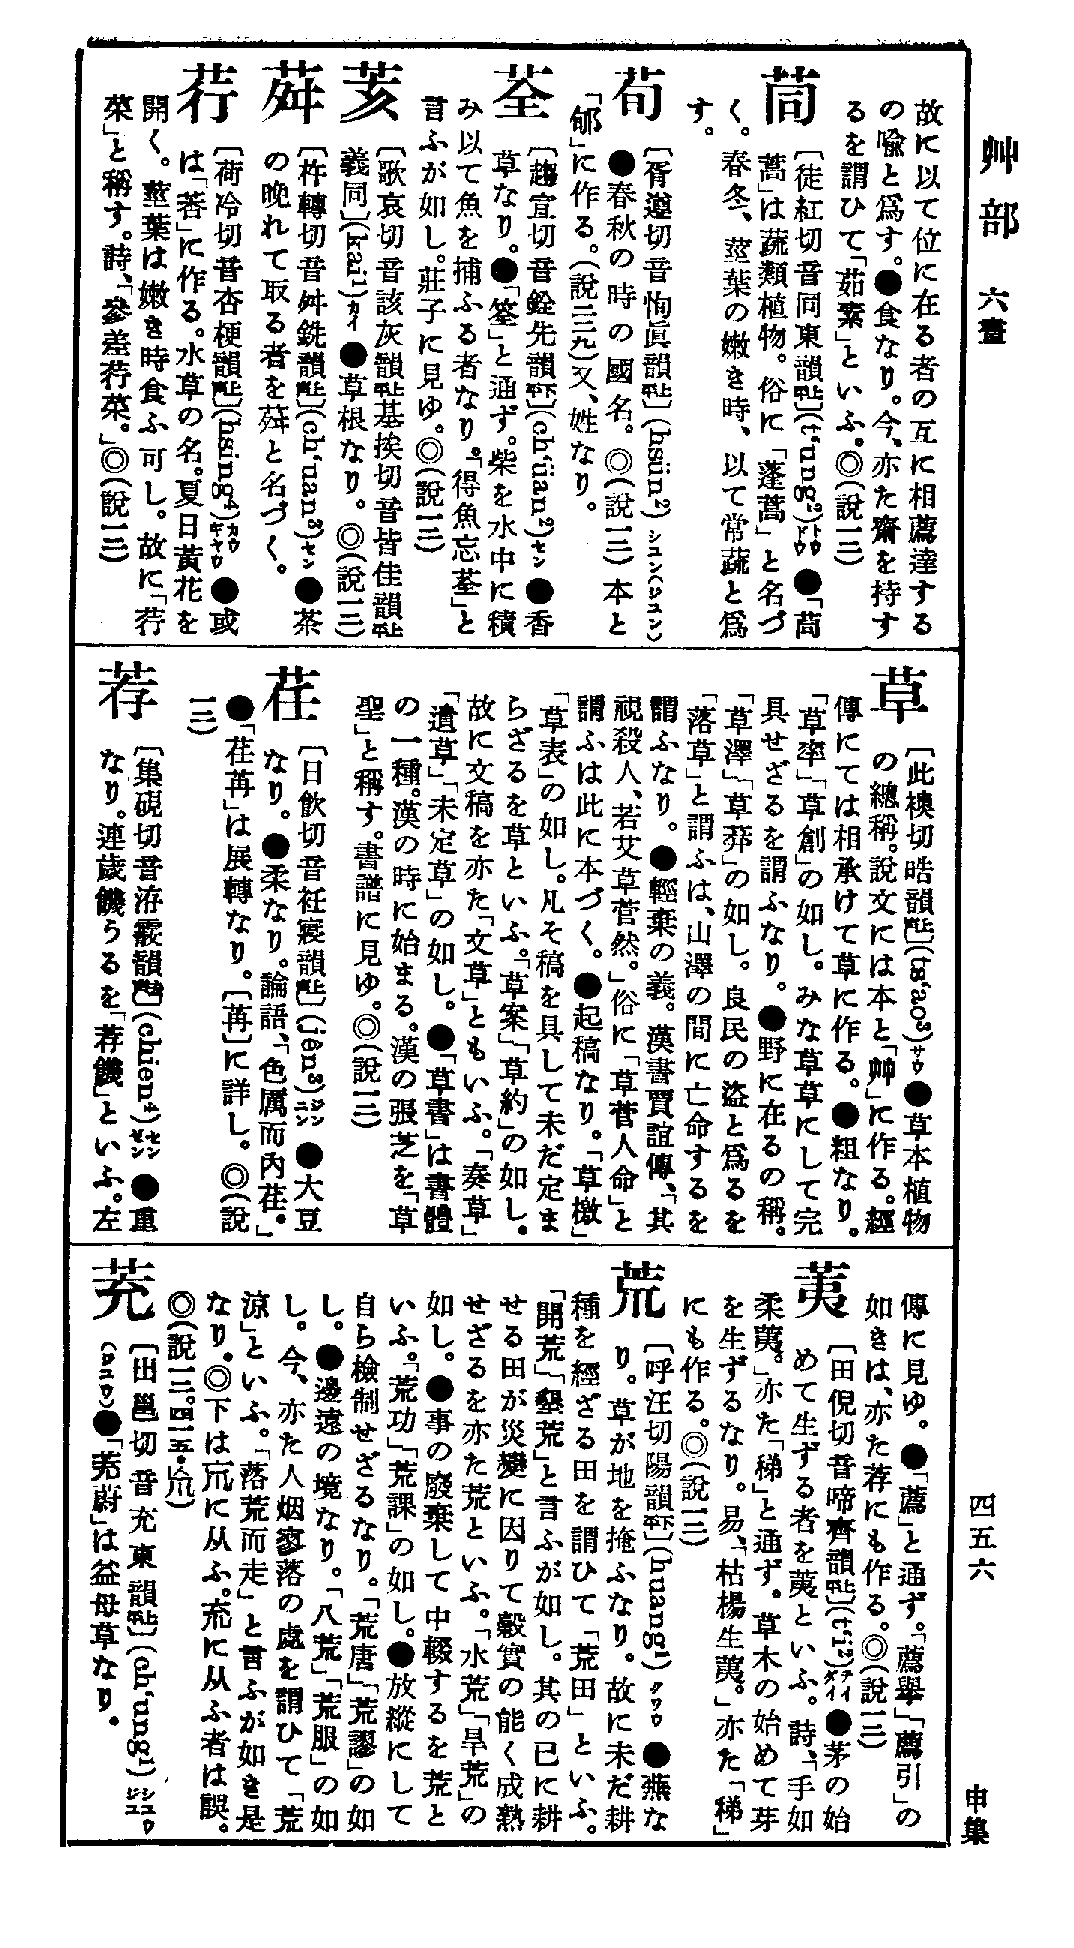 艸部 六畫
四五六
申集
故に以て位に在る者の互に相薦達する
の喩と爲す。●食なり。今、亦た齋を持す
るを謂ひて「茹素」といふ。◎(說一三)
茼
〔徒紅切音同東韻平上〕(t'ung²)トウドウ●「茼
蒿」は蔬類植物。俗に「蓬蒿」と名づ
く。春冬、莖葉の嫩き時、以て常蔬と爲
す。
荀
〔胥遵切音恂眞韻平上〕(hsün²)シユン(ジユン)
●春秋の時の國名。◎(說一三)本と
「郇」に作る。(說二二九)又、姓なり。
荃
〔趨宜切音銓先韻平下〕(ch'üan²)セン●香
草なり。●「筌」と通ず。柴を水中に積
み以て魚を捕ふる者なり。「得魚忘荃」と
言ふが如し。莊子に見ゆ。◎(說一三)
荄
〔歌哀切音該灰韻平上基挨切音皆佳韻平上
義同〕(kai¹)カイ●草根なり。◎(說一三)
荈
〔杵轉切音舛銑韻上〕(ch'uan³)セン●茶
の晩れて取る者を荈と名づく。
荇
〔荷冷切音杏梗韻上〕(hsing⁴)カウギヤウ●或
は「莕」に作る。水草の名。夏日黃花を
開く。莖葉は嫩き時食ふ可し。故に「荇
菜」と稱す。詩、「參差荇菜。」◎(說一三)
草
〔此襖切晧韻上〕(ts'ao³)サウ●草本植物
の總稱。說文には本と「艸」に作る。經
傳にては相承けて草に作る。●粗なり。
「草率」「草創」の如し。みな草草にして完
具せざるを謂ふなり。●野に在るの稱。
「草澤」「草莽」の如し。良民の盜と爲るを
「落草」と謂ふは、山澤の間に亡命するを
謂ふなり。●輕棄の義。漢書賈誼傳、「其
視殺人、若艾草菅然。」俗に「草菅人命」と
謂ふは此に本づく。●起稿なり。「草檄」
「草表」の如し。凡そ稿を具して未だ定ま
らざるを草といふ。「草案」「草約」の如し。
故に文稿を亦た「文草」ともいふ。「奏草」
「遺草」「未定草」の如し。●「草書」は書體
の一種。漢の時に始まる。漢の張芝を「草
聖」と稱す。書譜に見ゆ。◎(說一三)
荏
〔日飮切音衽寢韻上〕(jên³)ジンニン●大豆
なり。●柔なり。論語、「色厲而內荏。」
●「荏苒」は展轉なり。〔苒〕に詳し。◎(說
一三)
荐
〔集硯切音洊霰韻去〕(chien⁴)センゼン●重
なり。連歲饑うるを「荐饑」といふ。左
傳に見ゆ。●「薦」と通ず。「薦擧」「薦引」の
如きは、亦た荐にも作る。◎(說一三)
荑
〔田倪切音啼齊韻平上〕(t'i²)テイダイ●茅の始
めて生ずる者を荑といふ。詩、「手如
柔荑。」亦た「稊」と通ず。草木の始めて芽
を生ずるなり。易、「枯楊生荑。」亦た「稊」
にも作る。◎(說一三)
荒
〔呼汪切陽韻平下〕(huang¹)クワウ●蕪な
り。草が地を掩ふなり。故に未だ耕
種を經ざる田を謂ひて「荒田」といふ。
「開荒」「墾荒」と言ふが如し。其の已に耕
せる田が災變に因りて穀實の能く成熟
せざるを亦た荒といふ。「水荒」「旱荒」の
如し。●事の廢棄して中輟するを荒と
いふ。「荒功」「荒課」の如し。●放縱にして
自ら檢制せざるなり。「荒唐」「荒謬」の如
し。●邊遠の境なり。「八荒」「荒服」の如
し。今、亦た人烟寥落の處を謂ひて「荒
涼」といふ。「落荒而走」と言ふが如き是
なり。◎下は㠩に从ふ。巟に从ふ者は誤。
◎(說一三。四一五・㠩)
茺
〔出邕切音充東韻平上〕(ch'ung¹)シユウジユ
(ウユウ)●「茺蔚」は益母草なり。